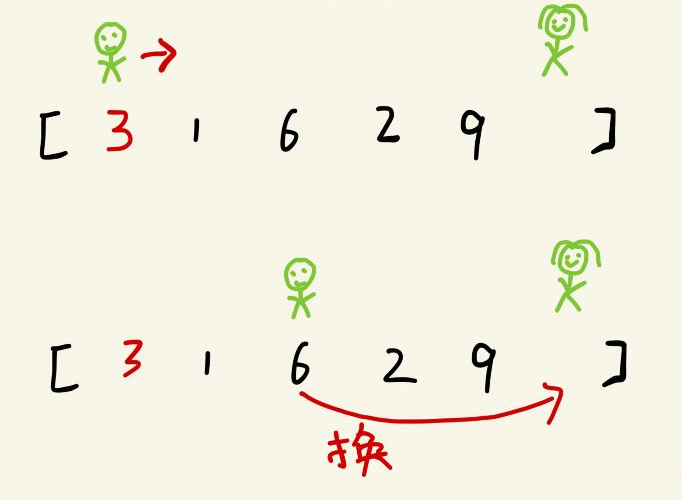 [ 3 1 6 2 9 ]
[ 3 1 6 2 9 ]
换